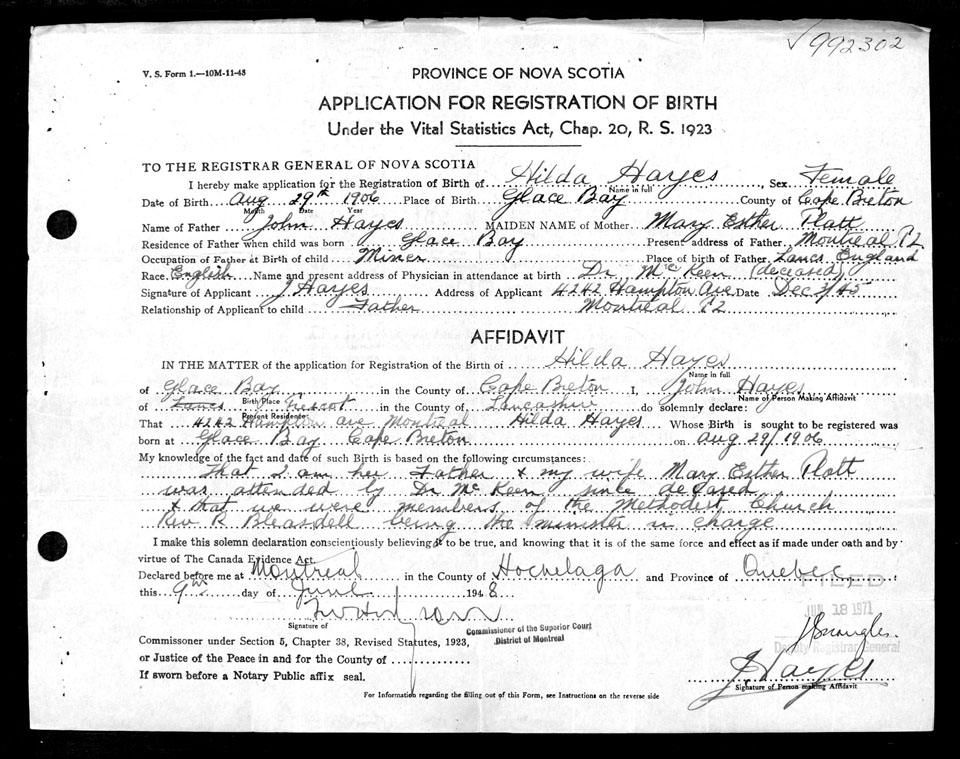 √ 992302
V. S. Form 1.—10M-11-43
PROVINCE OF NOVA SCOTIA
APPLICATION FOR REGISTRATION OF BIRTH
Under the Vital Statistics Act, Chap. 20, R. S. 1923
TO THE REGISTRAR GENERAL OF NOVA SCOTIA
I hereby make application for the Registration of Birth of Hilda Hayes, Sex Female
Name in full
Date of Birth Aug 29th 1906 Place of Birth Glace Bay County of Cape Breton
Month Date Year
Name of Father John Hayes MAIDEN NAME of Mother Mary Esther Platt
Residence of Father when child was born Glace Bay Present address of Father Montreal P2
Occupation of Father at Birth of child Miner Place of birth of Father Lancs England
Race English Name and present address of Physician in attendance at birth Dr. McKeen (deceased)
Signature of Applicant J Hayes Address of Applicant 4242 Hampton Ave Date Dec 3/45
Relationship of Applicant to child Father Montreal P2
AFFIDAVIT
IN THE MATTER of the application for Registration of the Birth of Hilda Hayes
Name in full
of Glace Bay in the County of Cape Breton I, John Hayes
Birth Place Name of Person Making Affidavit
of Lancs Prescot in the County of Lancashire do solemnly declare:
Present Residence
That 4242 Hampton ave Montreal Hilda Hayes Whose Birth is sought to be registered was
born at Glace Bay Cape Breton on Aug 29/1906
My knowledge of the fact and date of such Birth is based on the following circumstances:
That I am her Father & my wife Mary Esther Platt
was attended by Dr McKeen since decased
& that we were members of the Methodist Church
Rev R Bleasdell being the minister in charge
I make this solemn declaration conscientiously believing it to be true, and knowing that it is of the same force and effect as if made under oath and by
virtue of The Canada Evidence Act.
Declared before me at Montreal in the County of Hochelaga and Province of Quebec,
this 9th day of June 1948
FILED
JUN 18 1971
Signature of
Commissioner of the Superior Court
District of Montreal
Commissioner under Section 5, Chapter 38, Revised Statutes, 1923,
Deputy Registrar General
or Justice of the Peace in and for the County of
J Hayes
If sworn before a Notary Public affix seal.
Signature of Person making Affidavit
For Information regarding the filling out of this Form, see Instructions on the reverse side